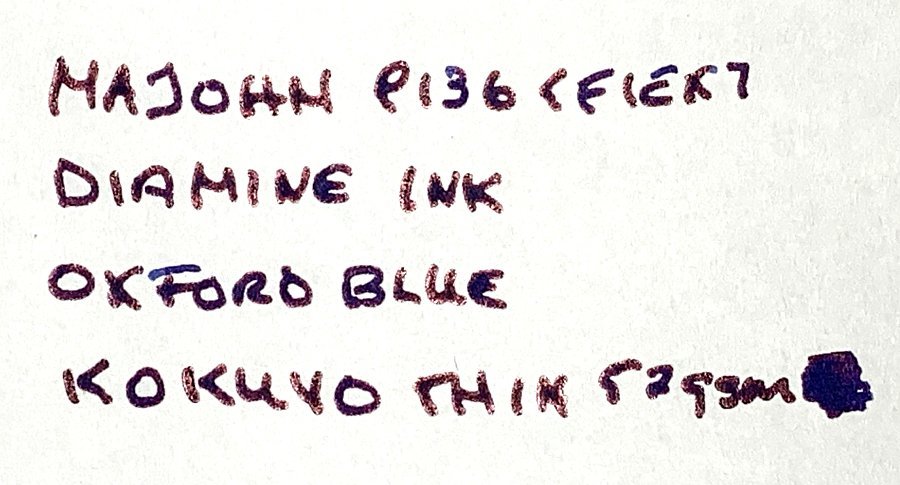 MAJOHN P136
DIAMINE INK
OXFORD BLUE
KOKUYO THIN